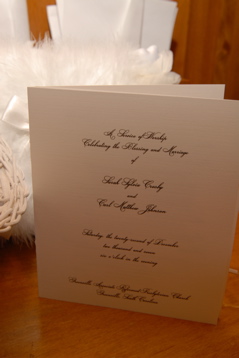 A Service of Worship
Celebrating the Blessing and Marriage
of
Sarah Sylvia
and
Matthew Johnson
Saturday, the twenty-second of December
two thousand and
o'clock in the
Associate Reformed Presbyterian Church
South Carolina